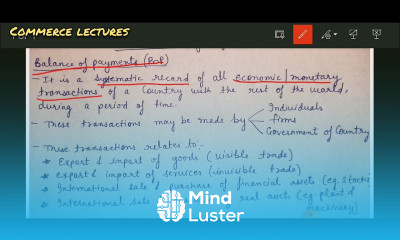 Commerce lectures
Balance of payments (BoP)
- It is a systematic record of all economic/monetary
transactions of a country with the rest of the world,
during a period of time.
- These transactions may be made by
Individuals
firms
Government of Country
- These transactions relates to:-
* Export & import of goods (visible trade)
* export & import of services (invisible trade)
* International sale & purchase of financial assets (eg. stocks
* International sale real assets (eg plant &
machinery)
Mind
Luster